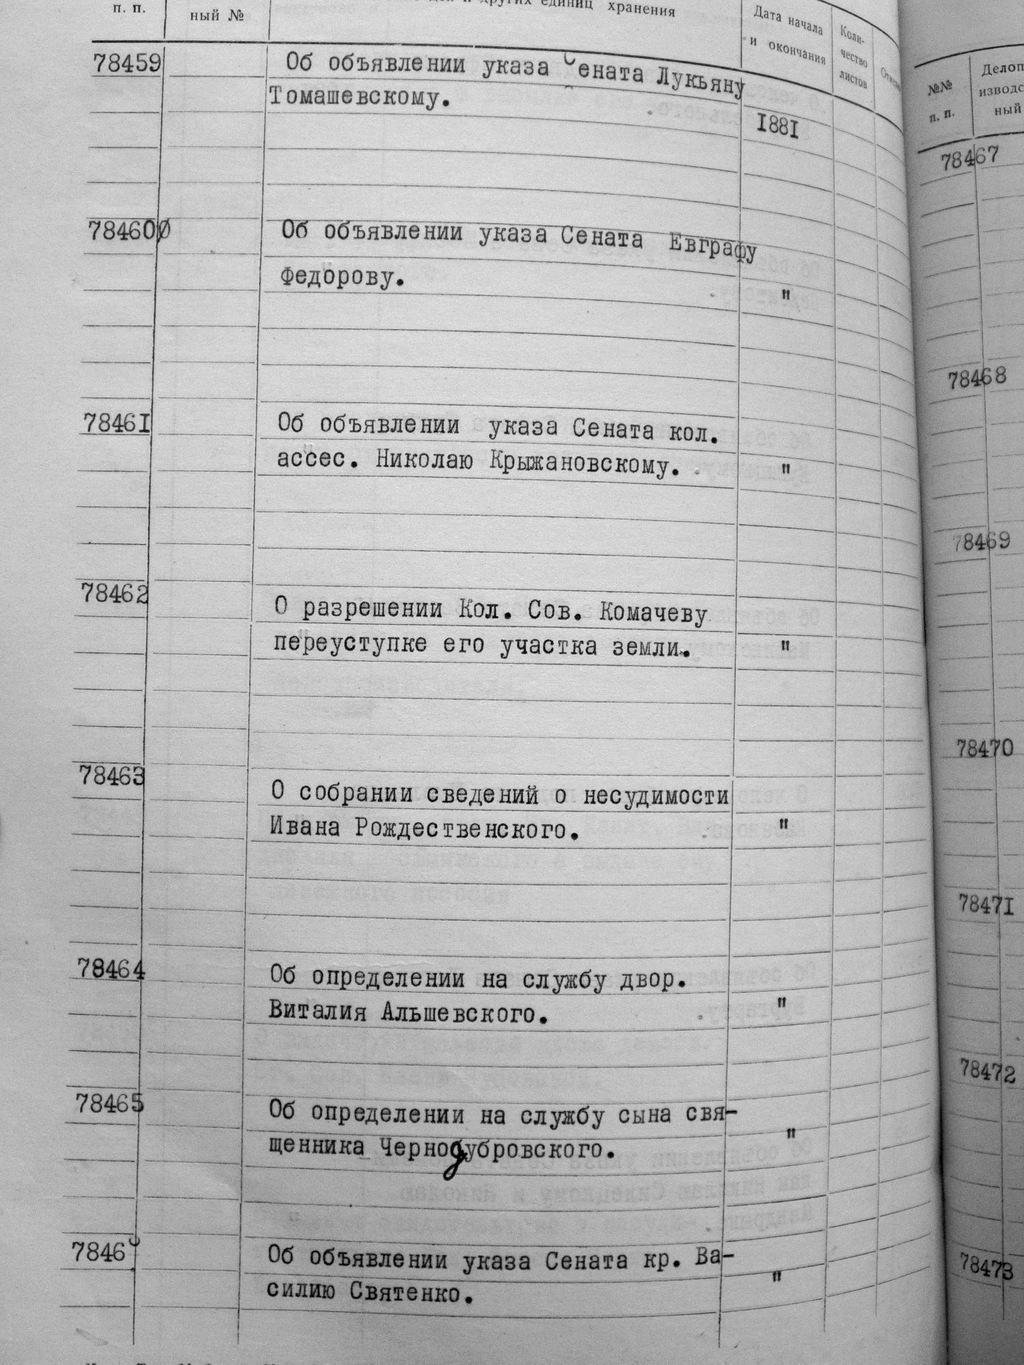 п. п. ный № других единиц хранения Дата начала и окончания Коли- чество листов
78459 Об объявлении указа Сената Лукьяну
Томашевскому. 1881
784600 Об объявлении указа Сената Евграфу
Федорову. "
78461 Об объявлении указа Сената кол.
ассес. Николаю Крыжановскому. "
78462 О разрешении Кол. Сов. Комачеву
переуступке его участка земли. "
78463 О собрании сведений о несудимости
Ивана Рождественского. "
78464 Об определении на службу двор.
Виталия Альшевского. "
78465 Об определении на службу сына свя-
щенника Чернодубровского. "
7846 Об объявлении указа Сената кр. Ва-
силию Святенко. "
№№ п. п.
78467
78468
78469
78470
78471
78472
78473